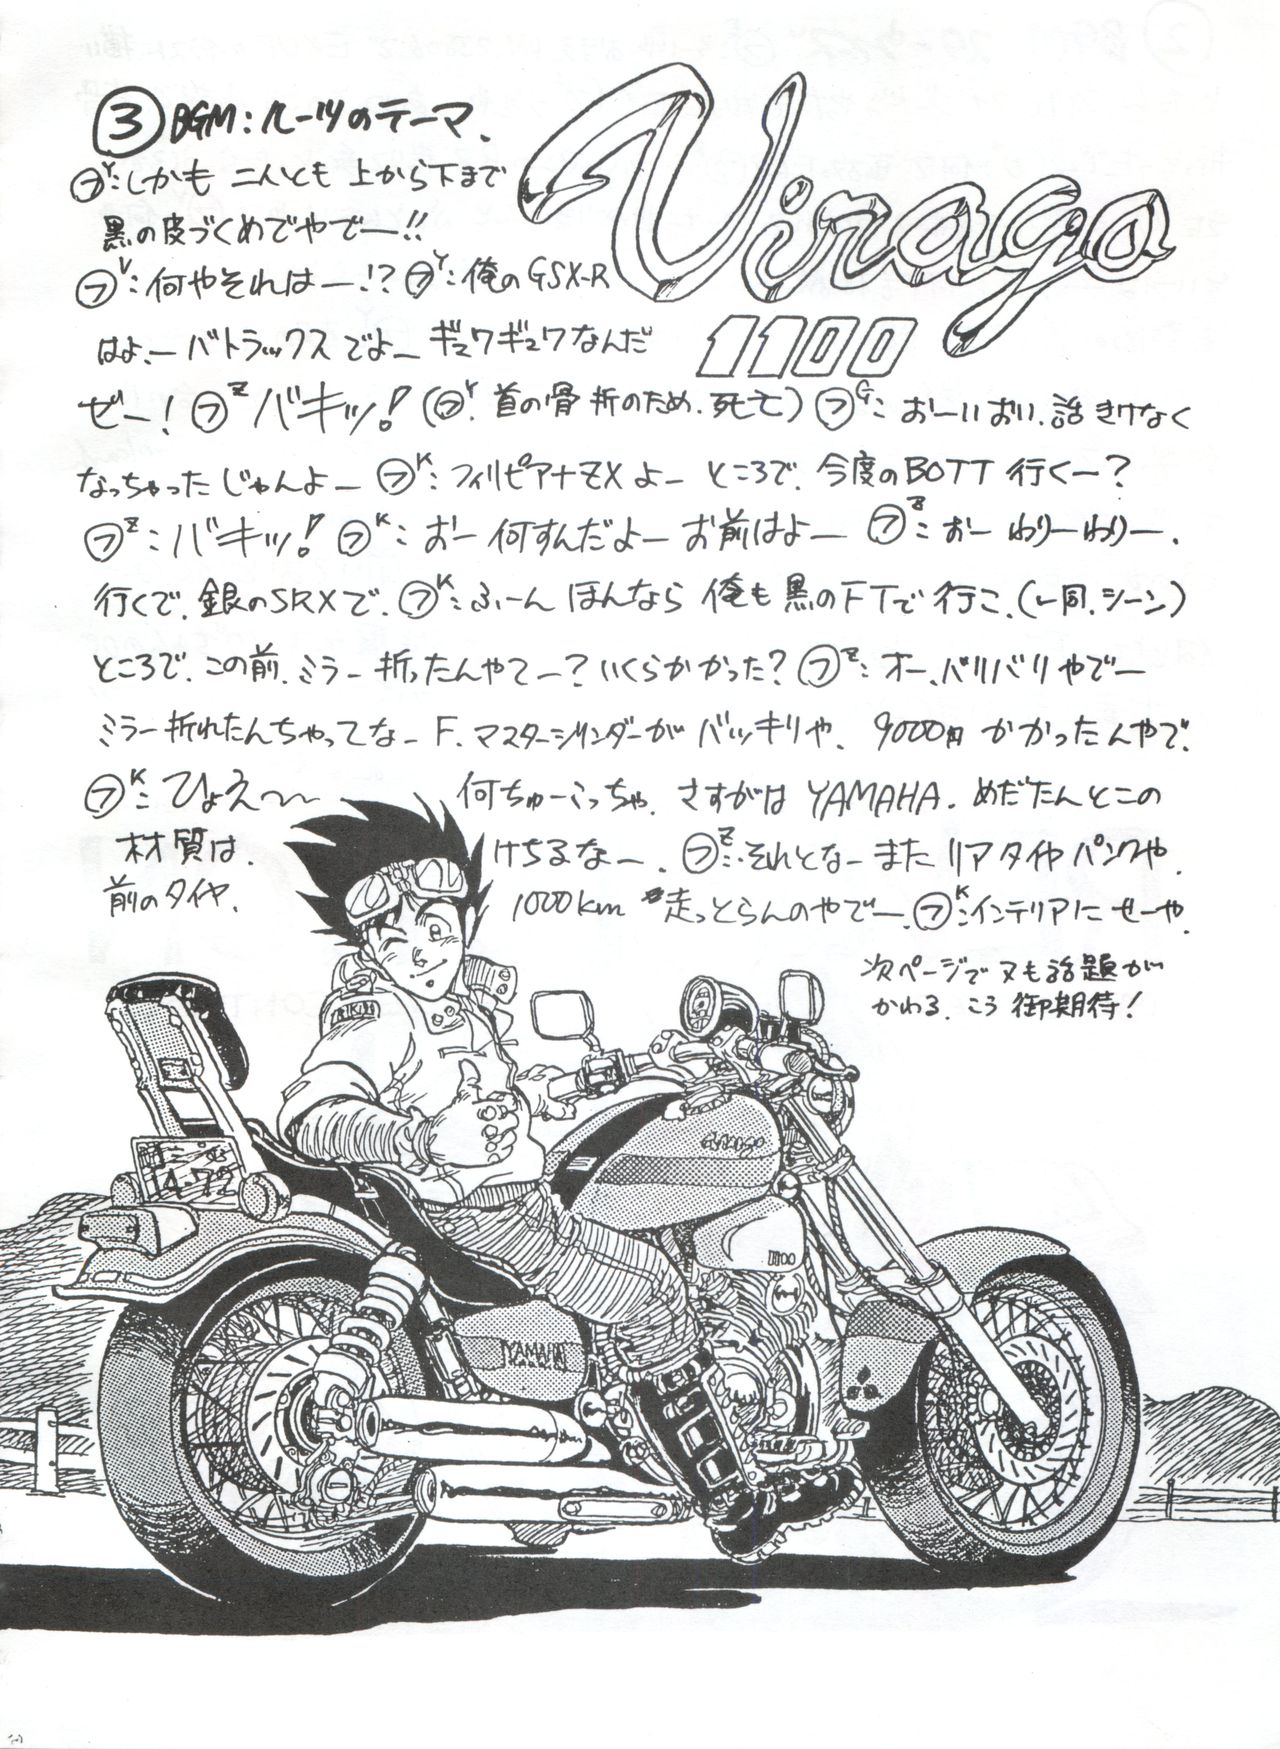 ③ BGM:ルーツのテーマ.
Virago
1100
㋫Y:しかも 二人とも 上から下まで
黒の皮づくめでやでー!!
㋫V:何やそれはー!? ㋫Y:俺のGSX-R
はよ.ーバトラックスでよー ギュワギュワなんだ
ぜー! ㋫Z バキッ! (㋫Y. 首の骨 折のため. 死亡) ㋫G: おーいおい. 話 きけなく
なっちゃったじゃんよー ㋫K:フィリピアナZXよー ところで. 今度のBOTT 行くー?
㋫Z:バキッ! ㋫K:おー 何すんだよー お前はよー ㋫Z:おー わりーわりー.
行くで. 銀のSRXで. ㋫K:ふーん ほんなら 俺も 黒のFTで 行こ. (と同.シーン)
ところで. この前. ミラー 折ったんやてー? いくらかかった? ㋫Z:オー、バリバリやでー
ミラー折れたんちゃってなー F. マスターシリンダーが バッキリや. 9000円 かかったんやで.
㋫K:ひょえ〜〜 何ちゅーこっちゃ. さすがは YAMAHA. めだたんとこの
材質は. けちるなー. ㋫Z:それとなー また リアタイヤ パンクや.
前のタイヤ. 1000km 走っとらんのやでー. ㋫K:インテリアに せーや.
次ページでヌも話題が
かわる. こう 御期待!
Virago
1100
4-72
YAMAHA